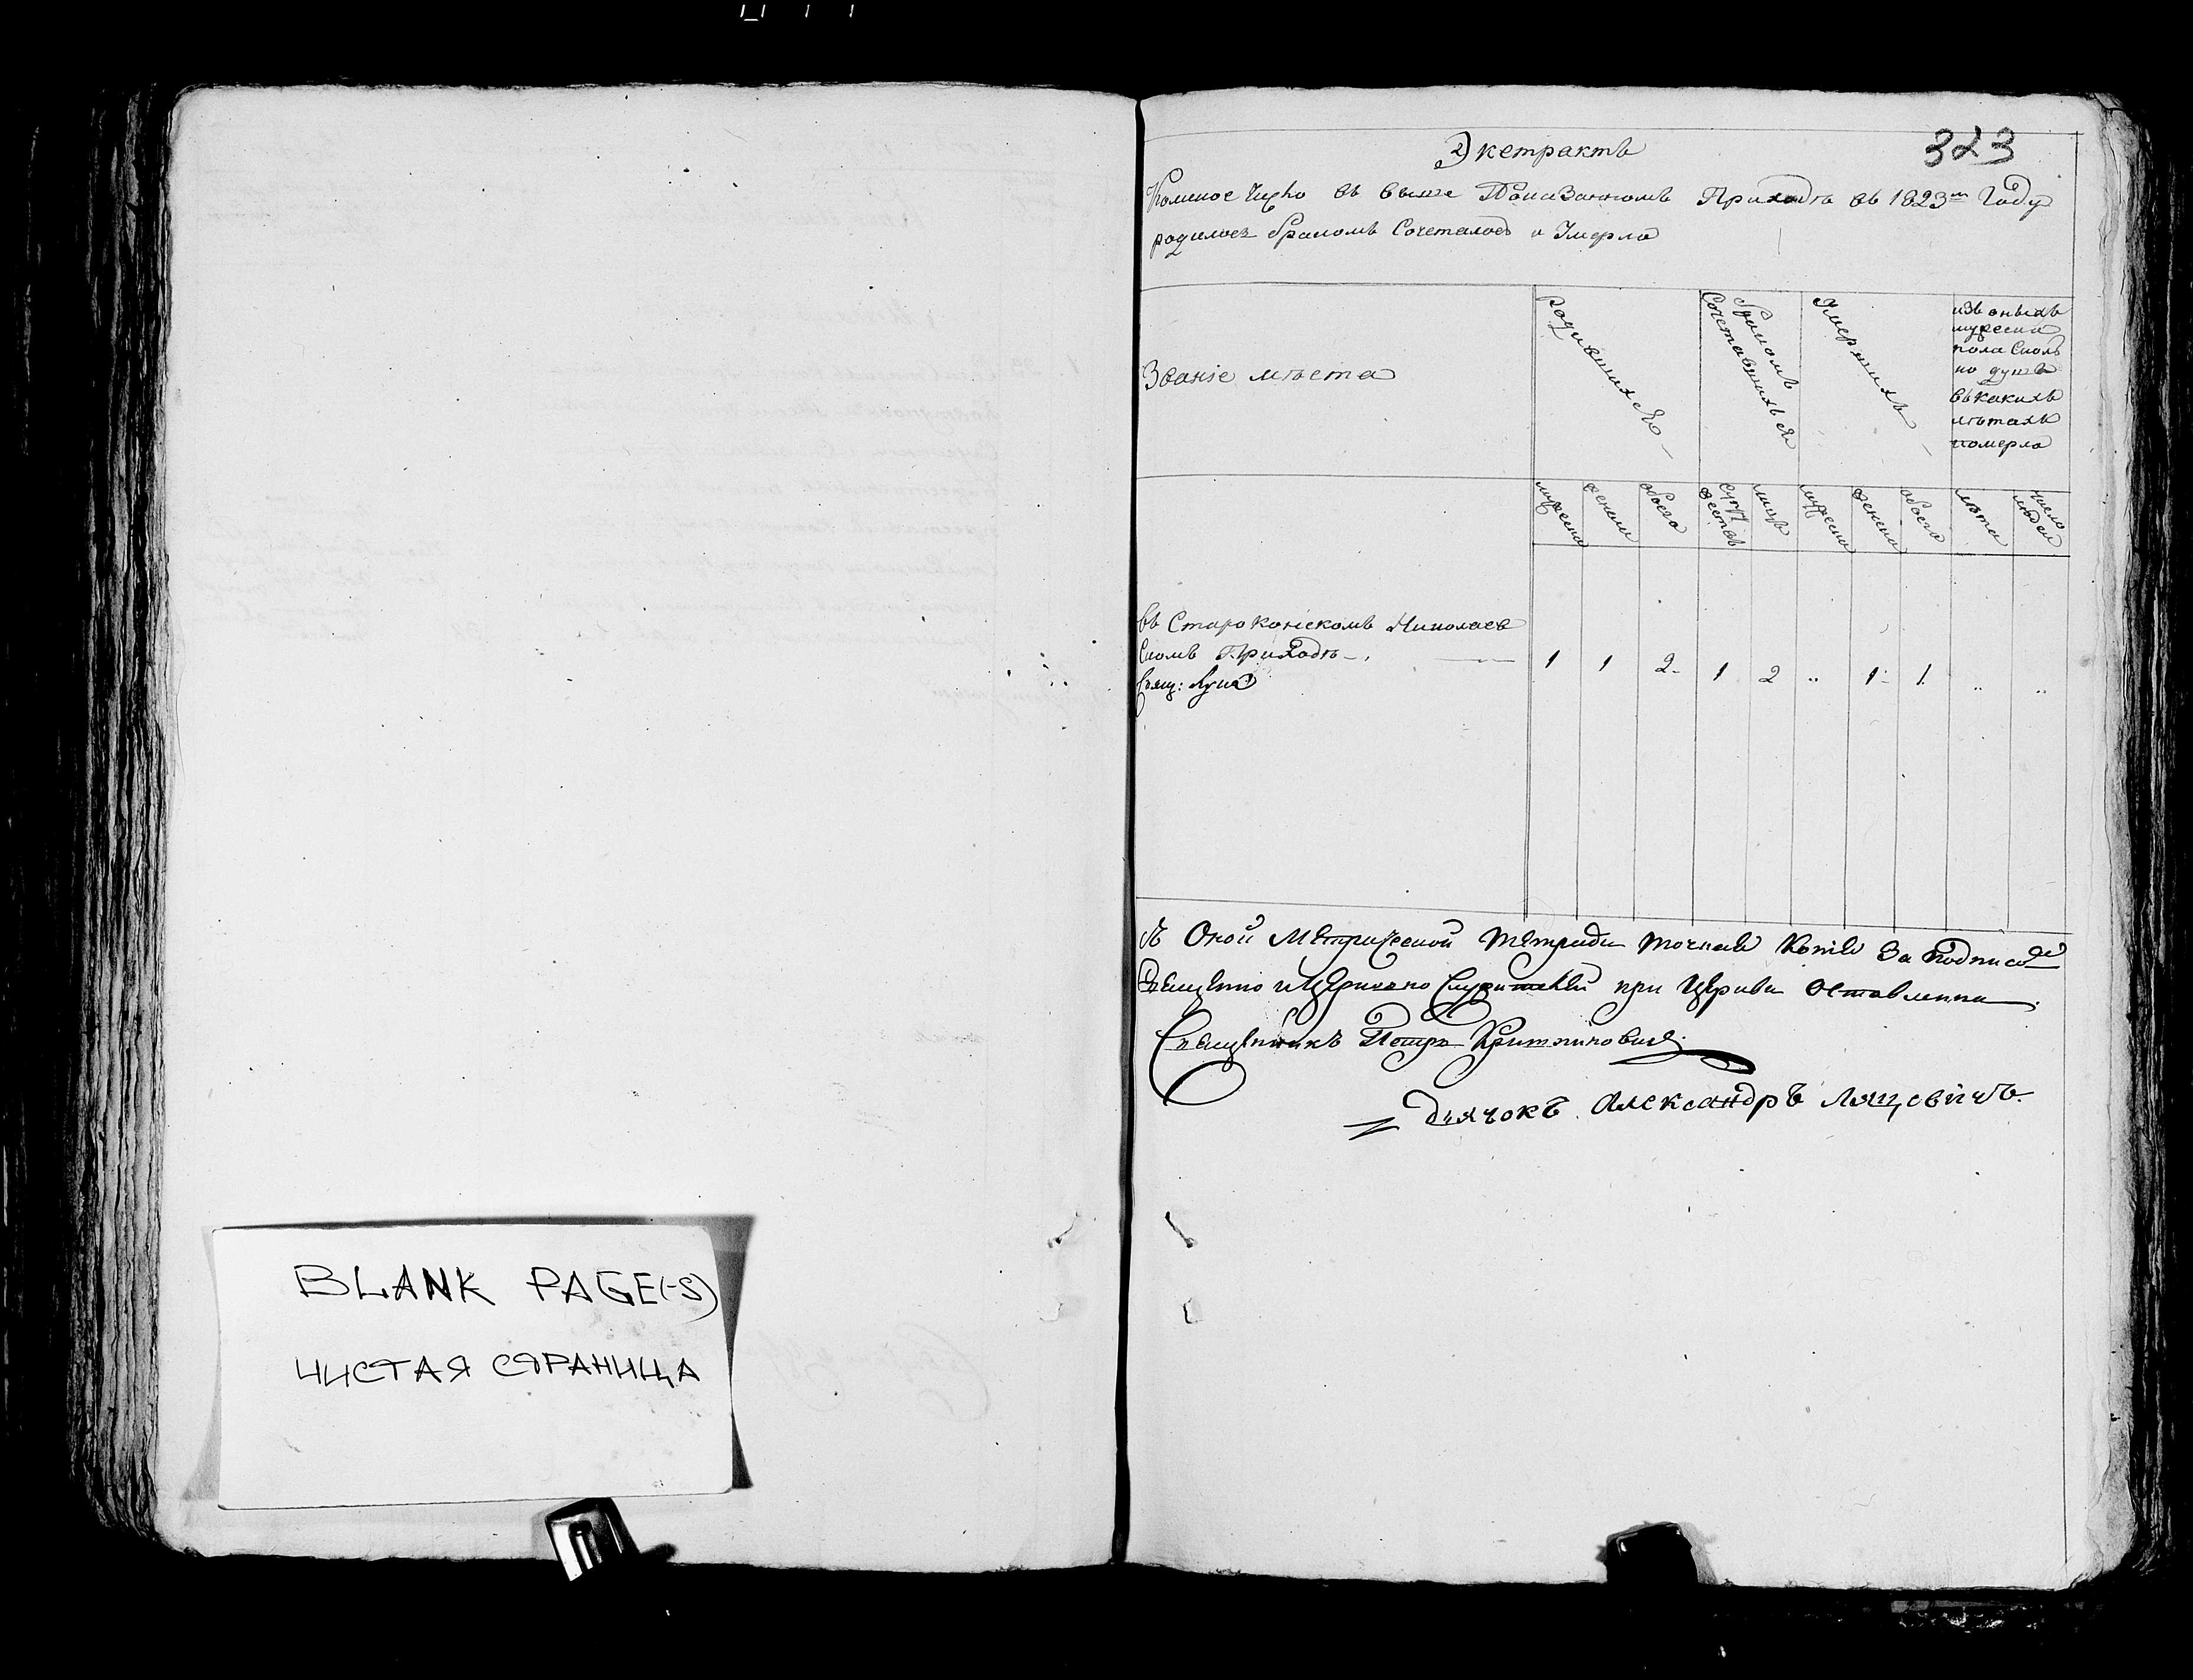 323
Экстрактъ
Коликое число въ выше Показанномъ Приходѣ въ 1823м Году
родилось бракомъ Сочеталось и Умерло
Званіе мѣста
Родившихся
бракомъ
Сочетавшихся
Умершихъ
изъ оныхъ
мужеска
пола Сколь
ко душъ
въ какихъ
лѣтахъ
померло
мужеска
женска
обоего
супру
жествъ
лицъ
мужеска
женска
обоего
лѣта
число
людей
въ Староконскомъ Николаев
скомъ Приходѣ
Свящ:
1 1 2 1 2 .. 1 1 .. ..
Съ Оной Метрической тетради точная Копія За подписо
Священно и Церковно Служителей при Церкви Оставленна
Священникъ Петръ
Дьячокъ Александръ Лящевичъ
BLANK PAGE(-S)
ЧИСТАЯ СТРАНИЦА